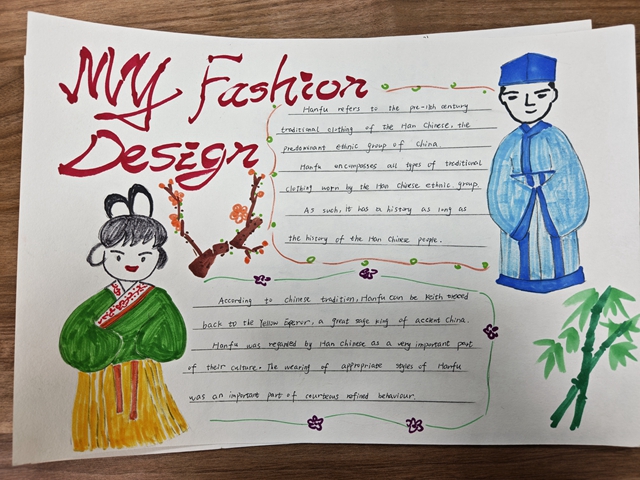 My Fashion
Design
Hanfu refers to the pre-16h century
traditional clothing of the Han Chinese, the
predominant ethnic group of China.
Hanfu uncompasses all types of traditional
clothing worn by the Han Chinese ethnic group.
As such, it has a history as long as
the history of the Han Chinese people.
According to chinese tradition, Hanfu can be
back to the Yellow Emperor, a great sage king of
Hanfu was regarded by Han Chinese as a very important part
of their culture. The wearing of appropriate styles of Hanfu
was an important part of courteous refined behaviour.